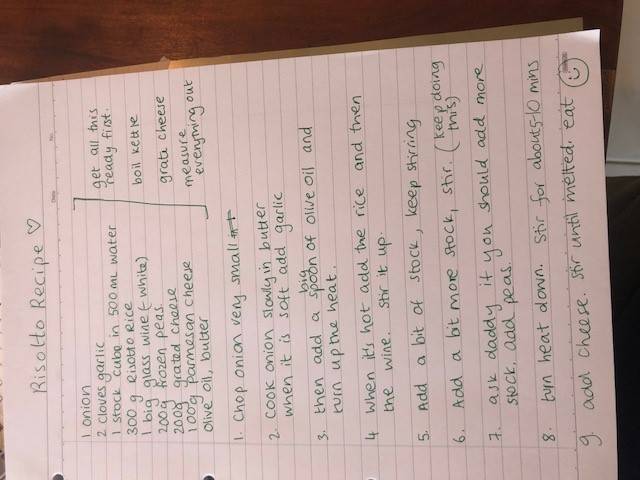 Risotto Recipe ♡
1 onion
2 cloves garlic
1 stock cube in 500 mL water
300 g Risotto Rice
1 big glass wine (white)
200g frozen peas.
200g grated cheese
100g Parmesan cheese
olive oil, butter
get all this
ready first.
boil kettle
grate cheese
measure
everything out
1. Chop onion very small
2. Cook onion slowly in butter
when it is soft add garlic
3. then add a big spoon of olive oil and
turn up the heat.
4 When it's hot add the rice and then
the wine. Stir it up.
5. Add a bit of stock, keep stirring
6. Add a bit more stock, stir. (keep doing
this)
7. ask daddy if you should add more
stock. add peas.
8. turn heat down. Stir for about 5-10 mins
9. add cheese. stir until melted. eat ☺